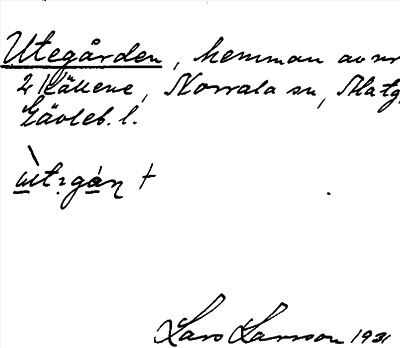 Utegården, hemman av nr
2 Källene, Norrala sn,
Gävleb. l.
Lars Larsson 1931